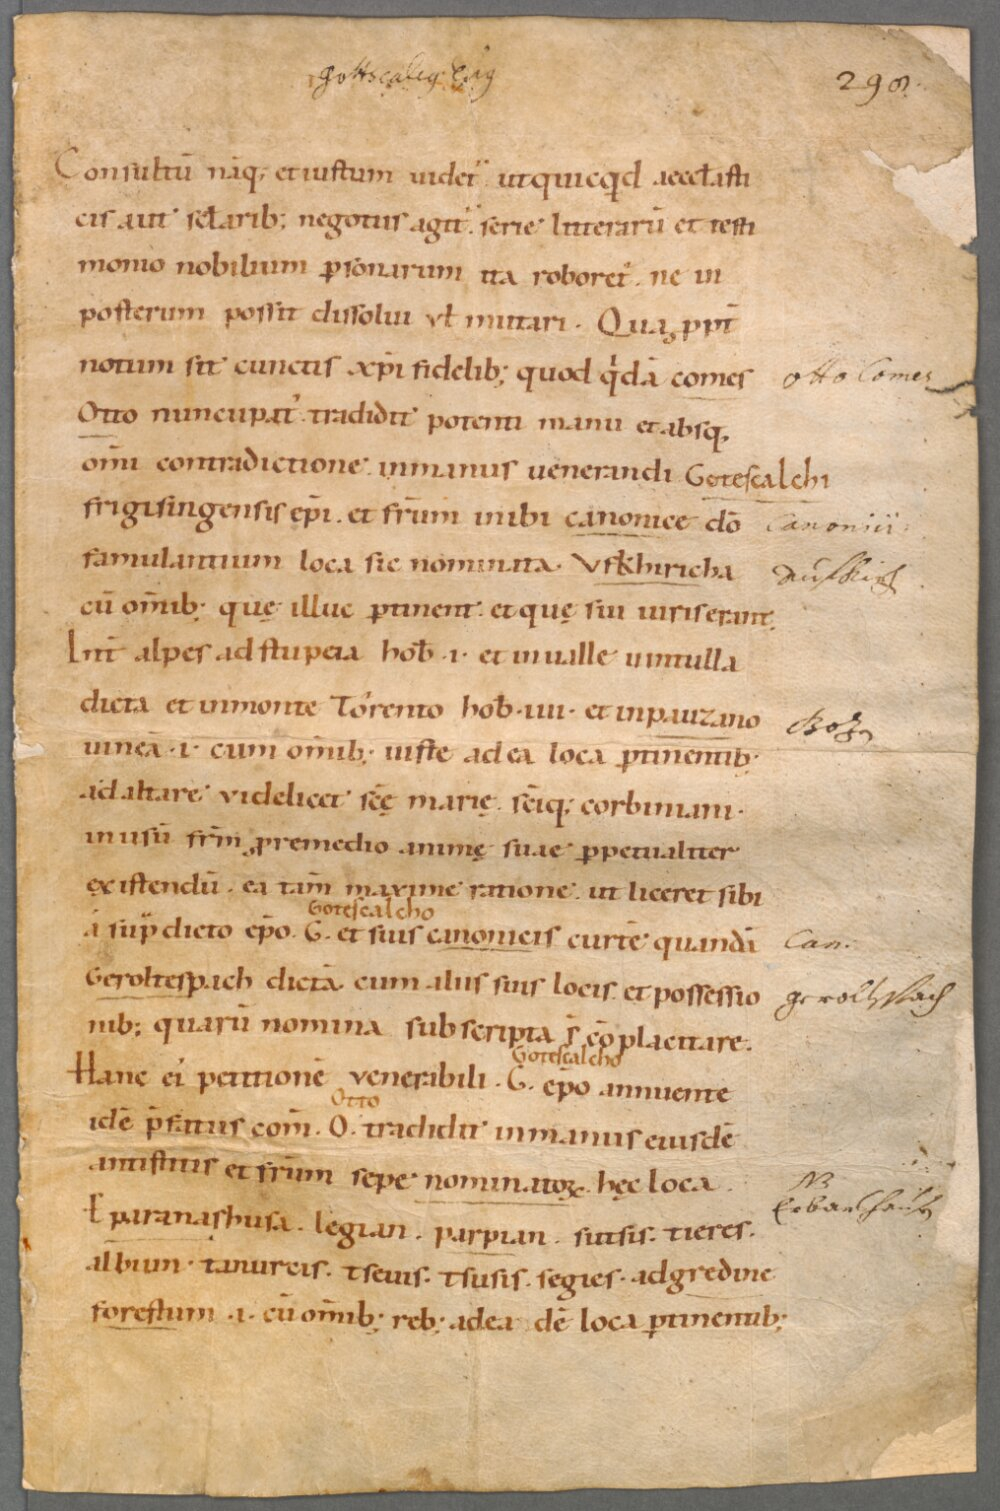 298.
Consultū náq; et iustum uidet᷑ ut quicq̇d aeccl̄asti
cis aut sc̄larib; negotiis agit᷑ serie litterarū et testi
monio nobilium p̱sonarum ita roboret᷑. ne in
posterum possit dissolui vl̄ mutari. Quaꝓpt̄
notum sit cunctis xp̄i fidelib; quod q̇dā comes
Otto nuncupat᷑. tradidit potenti manu et absq;
om̄i contradictione inmanus uenerandi Gotescalchi
frigisingensis ep̄i. et fr̄um inibi canonice dō
famulantium loca sic nominata. Vfkhiricha
cū om̄ib; quę illuc p̱tinent. et quę sui iuris erant.
Int̄ alpes ad stupeia hob̄ .i. et in ualle uintulla
dicta et inmonte Torento hob̄ .iiii. et inpauzano
uineā .i. cum om̄ib; iuste ad ea loca p̱tinentib;
ad altare videlicet sc̄ę marię. sc̄iq; corbiniani.
in usū fr̄m ꝓremedio animę suae p̱petualiter
existendū. ea tam̄ maxime ratione. ut liceret sibi
Gotescalcho
á sup̱dicto ep̄o. G. et suis canonicis curtē quandā
Geroltespach dictā cum aliis suis locis. et possessio
nib; quarū nomina subscripta s̄ cō placitare.
Gotescalcho
Hanc ei᷑ petitionē venerabili. G. ep̄o annuente
Otto
idē p̄fatus com̄. O. tradidit inmanus eiusdē
antistitis et fr̄um sepe nominatoꝝ hęc loca.
Eparanashusa. legian. parpian. sutsis. tieres.
albiun. tanurcis. tseuis. tsusis. segies. adgredine
forestum .i. cū om̄ib; reb; adea dē loca p̱tinentib;
otto Comes
Canonici
Aufkirch
Boz
Can.
geroltzbach
NB